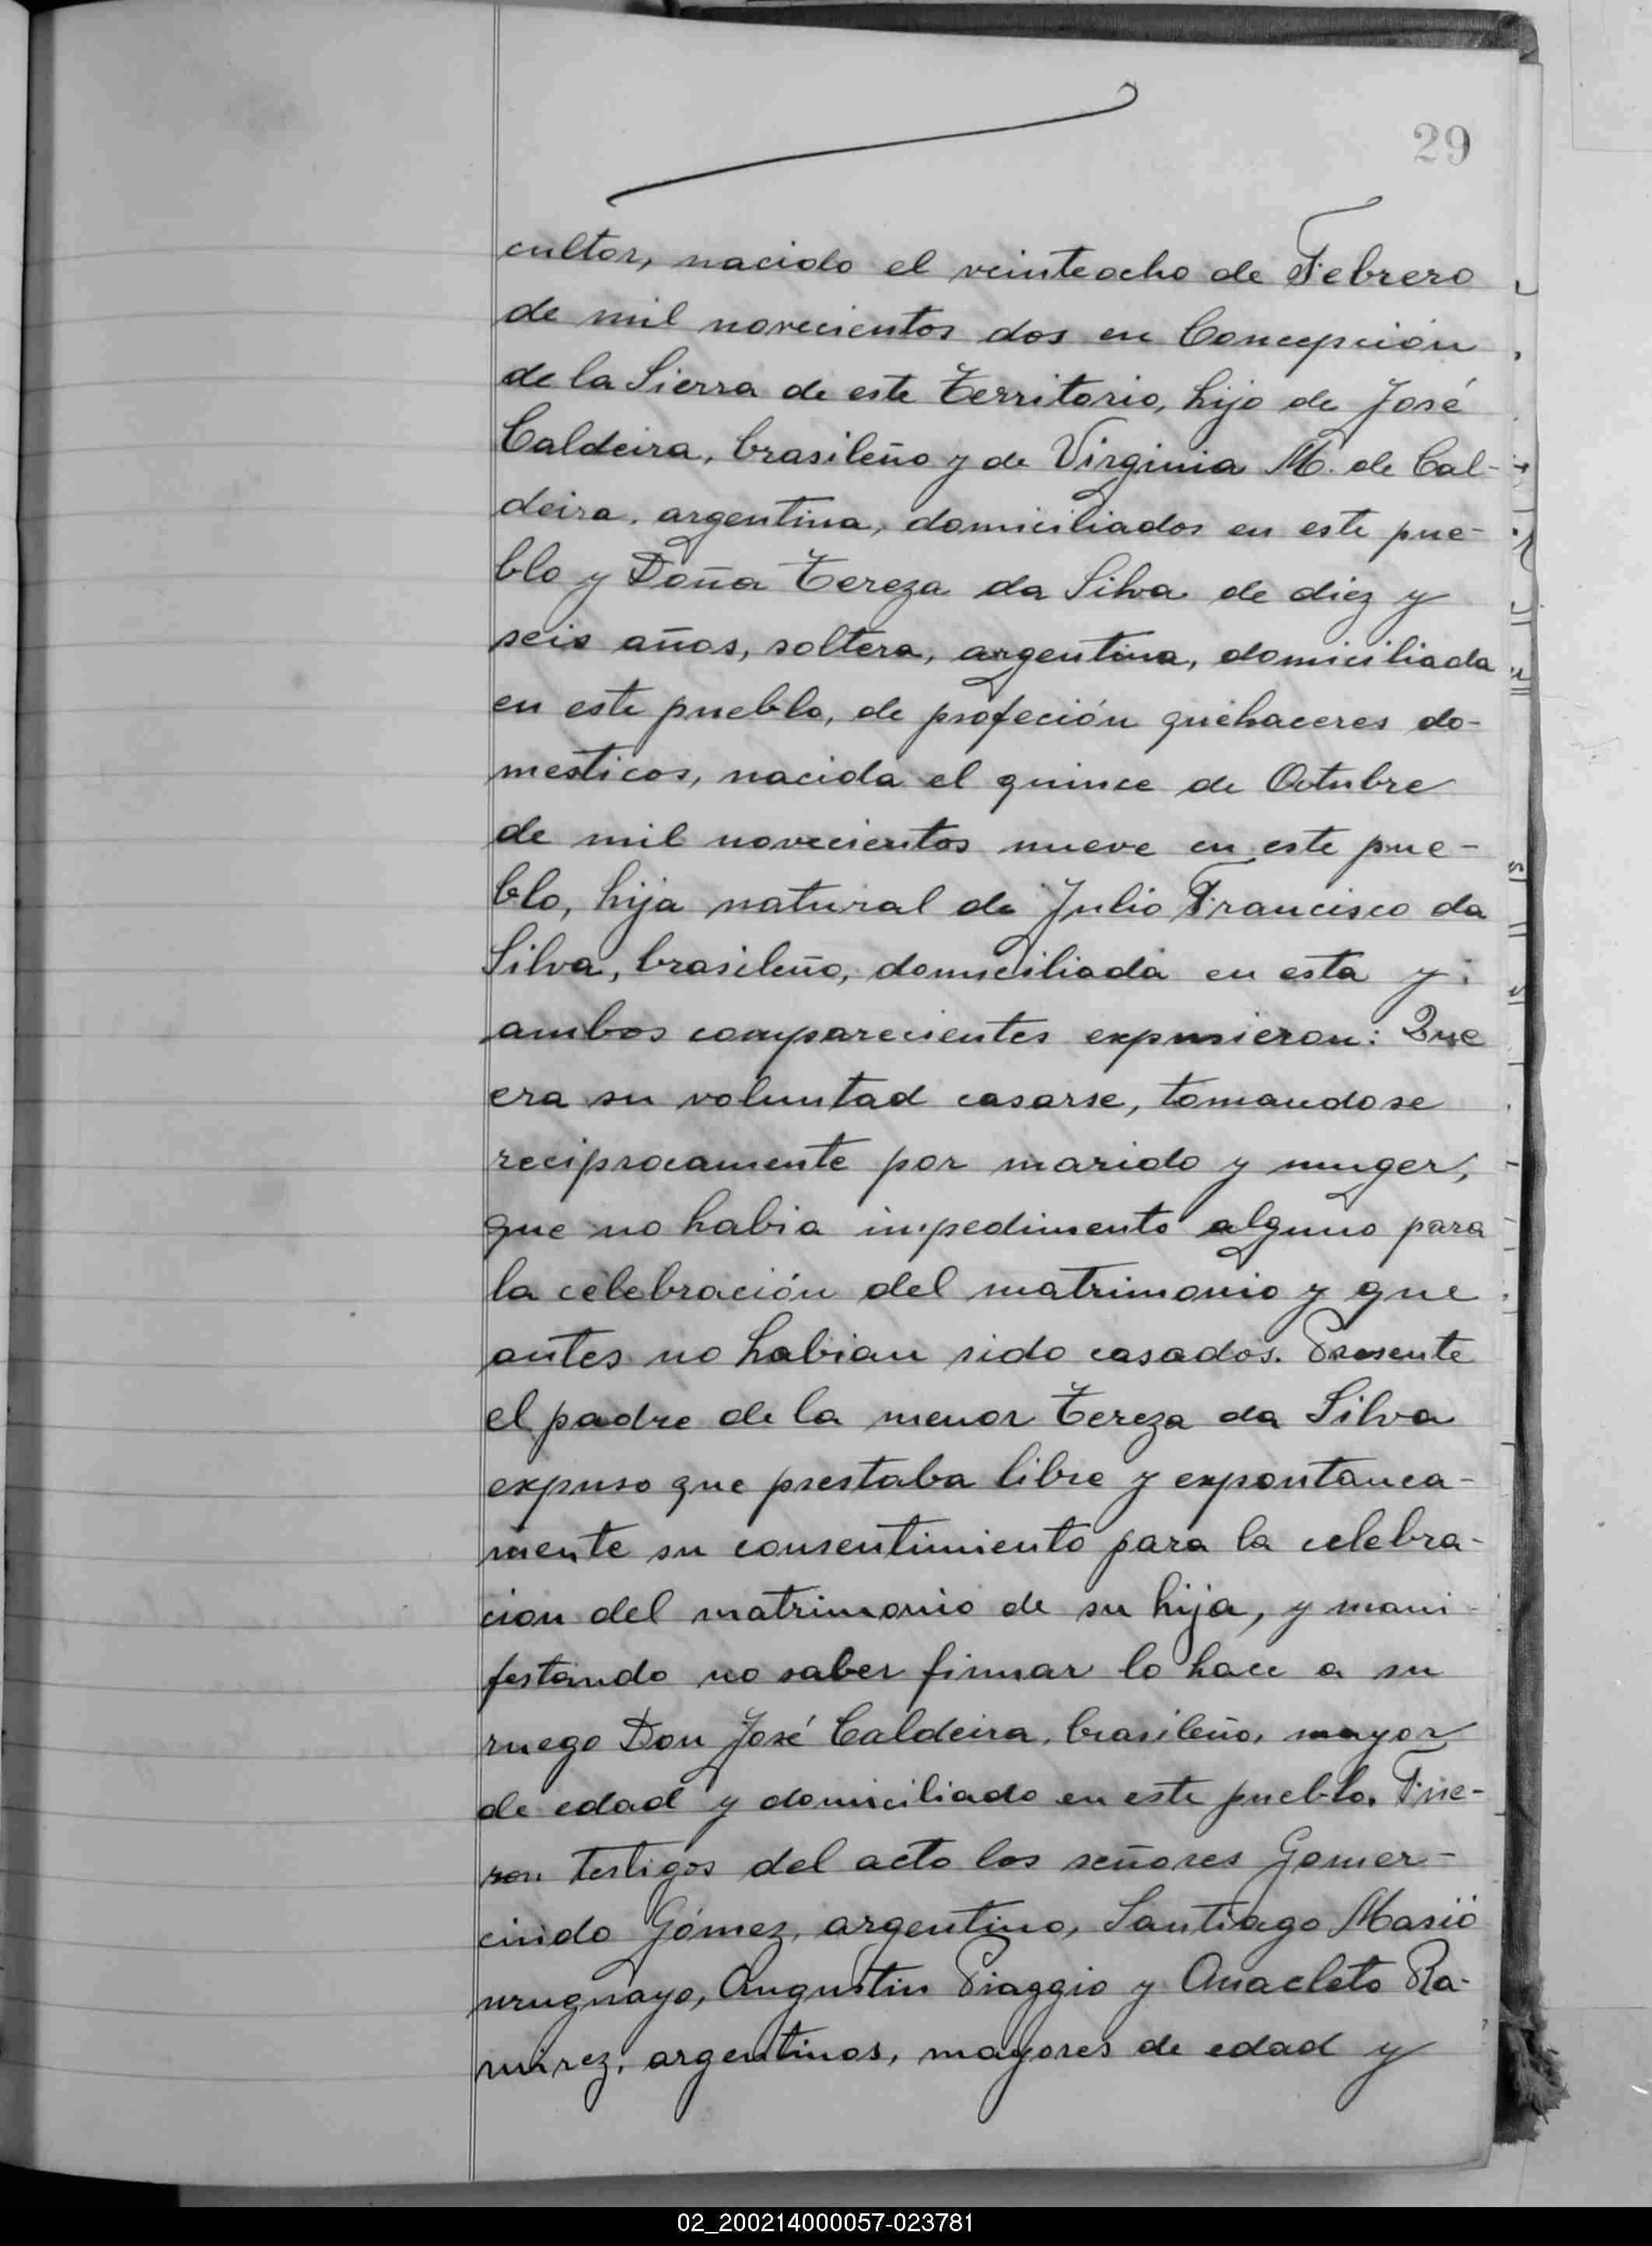 29
cultor, nacido el veinteocho de Febrero
de mil novecientos dos en Concepción
de la Sierra de este Territorio, hijo de José
Caldeira, brasileño y de Virginia M. de Cal-
deira, argentina, domiciliados en este pue-
blo y Doña Tereza da Silva de diez y
seis años, soltera, argentina, domiciliada
en este pueblo, de profeción quehaceres do-
mesticos, nacida el quince de Octubre
de mil novecientos nueve en este pue-
blo, hija natural de Julio Francisco da
Silva, brasileño, domiciliada en esta y
ambos comparecientes expusieron: Que
era su voluntad casarse, tomandose
reciprocamente por marido y muger,
que no habia impedimento alguno para
la celebración del matrimonio y que
antes no habian sido casados. Presente
el padre de la menor Tereza da Silva
expuso que prestaba libre y expontanea-
mente su consentimiento para la celebra-
cion del matrimonio de su hija, y mani-
festando no saber firmar lo hace a su
ruego Don José Caldeira, brasileño, mayor
de edad y domiciliado en este pueblo. Fue-
ron testigos del acto los señores Gomer-
cindo Gómez, argentino, Santiago
uruguayo, Augustin Piaggio y Anacleto Ra-
mirez, argentinos, mayores de edad y
02_200214000057-023781